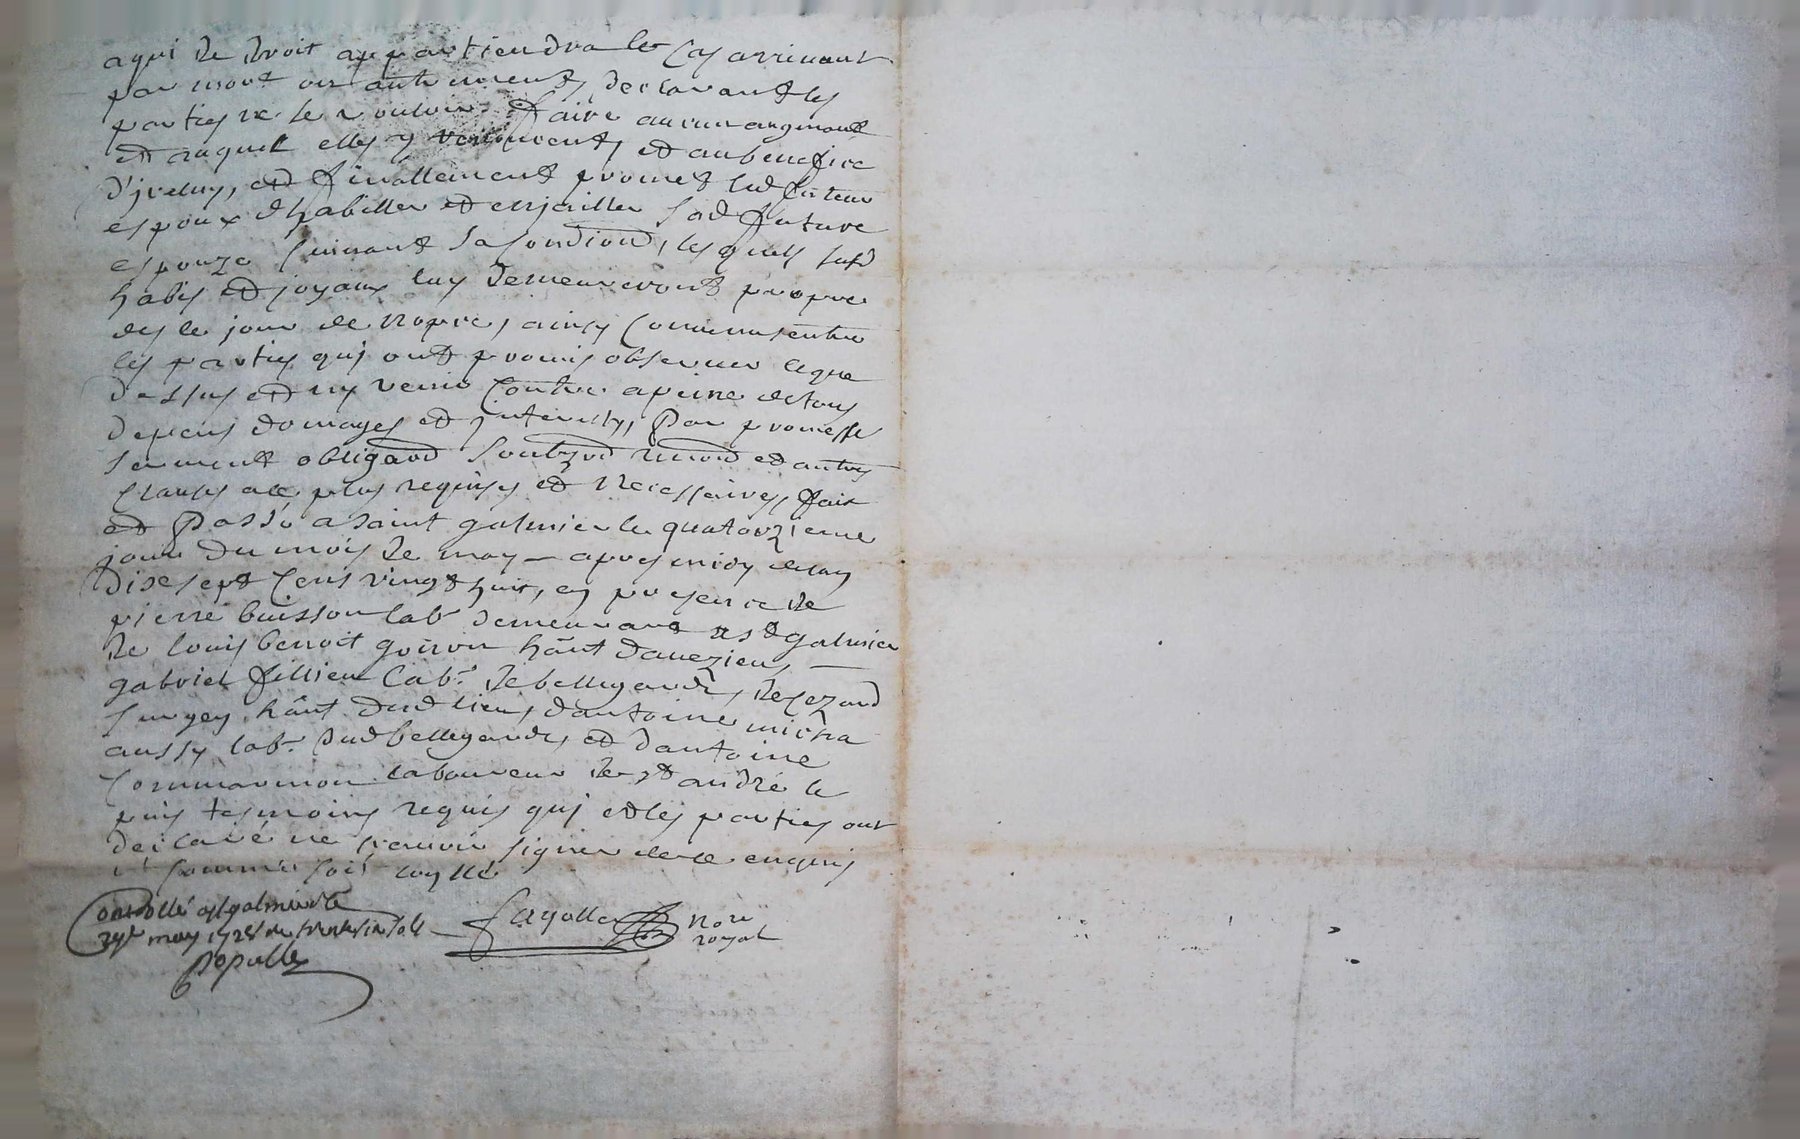 a qui de droit appartiendra le cas arrivant
par mort ou autrement, declarant les
parties ne se vouloir faire aucun augment
et auquel elles y renoncent, et au benefice
d'jceluy, et finallement promet led futeur
espoux d'habiller et enjoiller sad future
espouze suivant sa condiond, lesquels susd
habis et joyaux luy demeureront propre
des le jour de nopce, ainsy convenus entre
les parties quj ont promis observer ce que
dessus et ny venir contre a peine de tous
depens domages et jnterests, Par promesse
serment obligaod soubzod renod et autres
clauses ace plus requises et necessaires, fait
et Passé a saint galmier le quatorzieme
jour du mois de may _ apres midy de lan
dise sept cens vingt huit, en presence de
pierre buisson lab.r demeurant a st galmier
de louis benoit goiron hãnt d'aveziens _
gabriel fillieu lab.r de bellegarde,
hãnt dud lieu, d'antoine micha
aussy lab.r dud bellegarde, et d'antoine
commarmon laboureur de st andré le
puis tesmoins requis quj et les parties ont
declaré ne scavoir signer de ce enquis
et sommé soit
Controllé a st galmier le
may 1728
fayolle no.re
royal
Populle